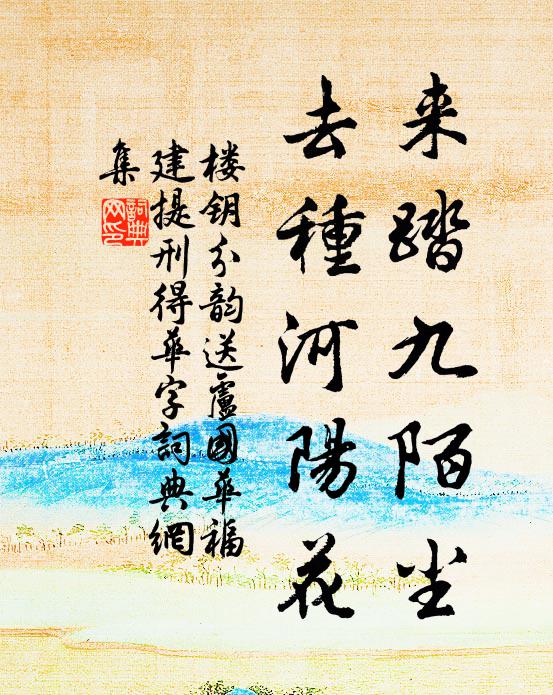 来踏九陌尘
去種河陽花
楼钥分韵送盧國華福
建提刑得華字詞典網
集
詞典
网印